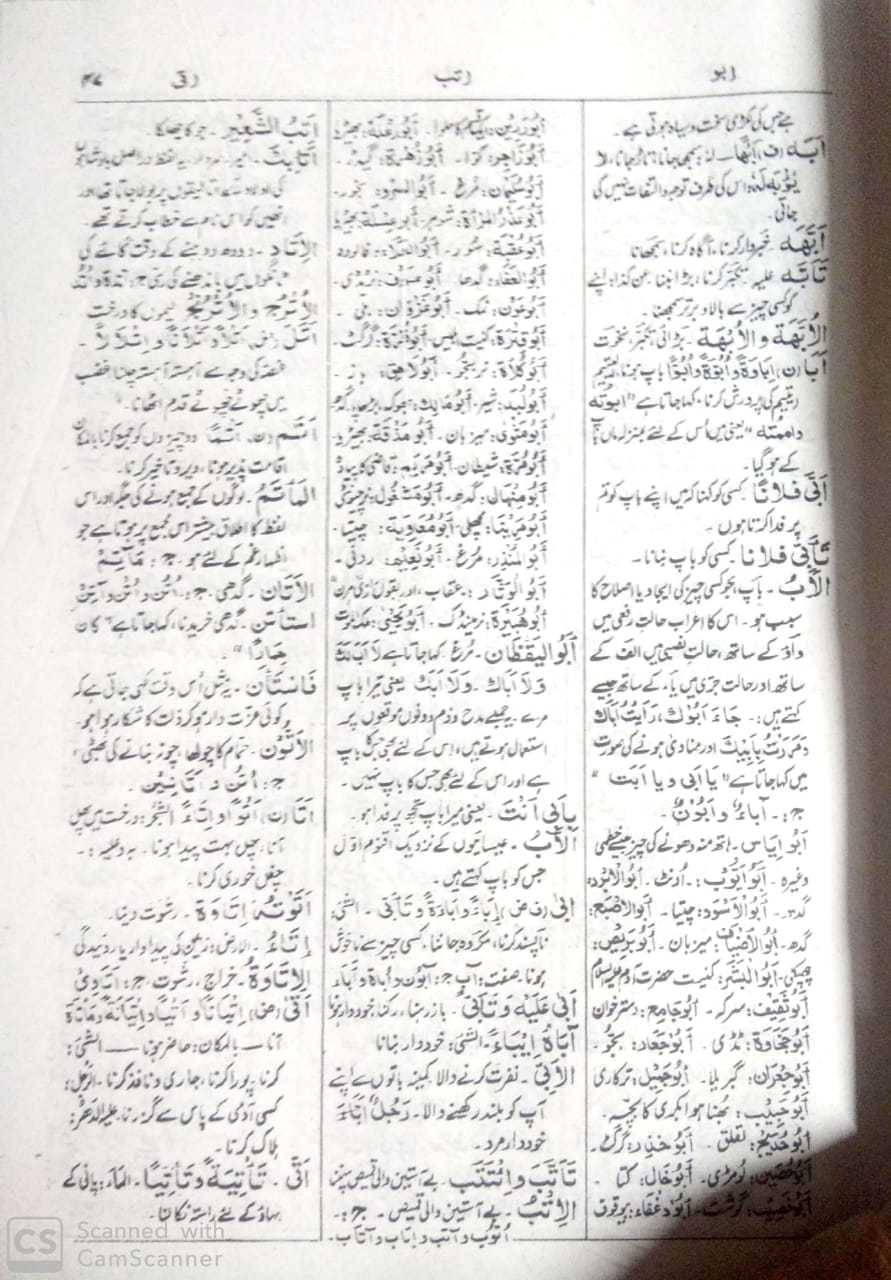 ابو
اتب
اتی
۴۷
ہے جس کی لکڑی سخت و سیاہ ہوتی ہے۔
اَبَہَ (ف) اَبْہًا۔ لہٗ: سمجھ جانا، تاڑ جانا، لا
یُوْبَہُ لَہٗ: اس کی طرف توجہ و التفات نہیں کی
جاتی۔
اَبَّهَہ خبردار کرنا، آگاہ کرنا، سمجھانا
تَأَبَّہَ علیہ تکبر کرنا، بڑا بننا، عن کذا: اپنے
کو کسی چیز سے بالا و برتر سمجھنا۔
الأُبَّهَة والأُبْهَة۔ بڑائی، تکبر، نخوت
اَبَا (ن) اِبَاوَةً وَ اُبُوَّةً وَ اُبُوًّا باپ ہونا،
یتیم کی پرورش کرنا، کہا جاتا ہے "ابوتُه
واممتُه" یعنی میں اُس کے لئے بمنزلہ ماں باپ
کے ہو گیا۔
اَبّٰی فلانًا کسی کو کہنا کہ میں اپنے باپ کو تم
پر فدا کرتا ہوں۔
تَأَبّٰی فلانا۔ کسی کو باپ بنانا۔
الأَبُ۔ باپ، جو کسی چیز کی ایجاد یا اصلاح کا
سبب ہو۔ اس کا اعراب حالتِ رفعی میں
واؤ کے ساتھ، حالتِ نصبی میں الف کے
ساتھ اور حالت جری میں یاء کے ساتھ جیسے
کہتے ہیں:۔ جَاءَ اَبُوْكَ، رَأَیْتُ اَبَاكَ
وَمَرَرْتُ بِاَبِیْكَ اور منادیٰ ہونے کی صورت
میں کہا جاتا ہے "یا ابی و یا ابت"
ج:۔ آباءٌ وابَوْنَ۔
اَبُو اِیَاس۔ ہاتھ منہ دھونے کی چیز جیسے خطمی
وغیرہ۔ اَبُوْ اَیُّوْب:۔ اُونٹ۔
اَبُوالأَسْوَد: چیتا۔ ابوالأصْبَع:
گدھ۔ اَبُوالأَضْیَاف: میزبان۔ اَبُوبَرِیْص:
چھپکلی۔ اَبُوالْبَشَر: کنیت حضرت آدم علیہ السلام
اَبُوثَقِیْف: سرکہ۔ اَبُوجَامِع: دسترخوان
ٹڈی۔ اَبُوجَعَاد: بجّو۔
اَبُوجُعْرَان: گبریلا۔ اَبُوجَمِیْل: ترکاری
اَبُوحَبِیْب: بُھنا ہوا بکری کا بچّہ۔
اَبُوحُدَیْج: لقلق۔ اَبُوحَذَر: گرگٹ۔
اَبُوحُصَیْن: لومڑی۔ اَبُوخَال: کتا۔
اَبُوخَصِیْب: گوشت۔ اَبُودَغْفَاء: بیوقوف
اَبُورَزِیْن:
اَبُوزَاجِر: کوا۔
اَبُوسُلَیْمَان: مُرغ۔ اَبُوالسَّرْو: بخور۔
اَبُوعُذْرِ المَرْأة: شوہر۔ اَبُوعِسْلَة: بھیڑیا
اَبُوعُقْبَة: سُور۔ اَبُوالعَلَاء: فالودہ
گدھا۔
اَبُوعَوْن: نمک۔ اَبُوغَزْوَان: بلی۔
اَبُوقُرَّة: گرگٹ۔
اَبُولَاحِق: باز۔
اَبُولُبَد: شیر۔ اَبُومَالِك: بھوک، بڑھاپا، گدھ
اَبُومَثْوٰی: میزبان۔ اَبُومَذْقَة: بھیڑیا
اَبُومُرَّة: شیطان۔ اَبُومَرْیَم: قاضی کا پیادہ
اَبُومِنْهَال: گدھ۔
اَبُومَرِیْنَا: مچھلی۔ اَبُومُعَاوِیَة: چیتا۔
اَبُوالْمُنْذِر: مُرغ۔ اَبُونُعَیْم: روٹی۔
اَبُوالوَثَّاب:
اَبُوهُبَیْرَة: نر مینڈک۔ اَبُویَحْیٰی: ملک الموت
اَبُوالیَقْظَان۔ مُرغ۔ کہا جاتا ہے لَا اَبَا لَكَ
وَلَا اَبَاكَ۔ وَلَا اَبَ لَكَ یعنی تیرا باپ
مرے۔ یہ جملے مدح و ذم دونوں موقعوں پر
استعمال ہوتے ہیں، اس کے لئے بھی جس کا باپ
ہے اور اس کے لئے بھی جس کا باپ نہیں۔
بِاَبِی اَنْتَ۔ یعنی میرا باپ تجھ پر فدا ہو۔
الأَبُ۔ عیسائیوں کے نزدیک اقنوم اوّل
جس کو باپ کہتے ہیں۔
اَبٰی (ف ض) اِبَاءً وَاِبَاءَةً وَ تَأَبّٰی۔ الشیٔ:
ناپسند کرنا، مکروہ جاننا، کسی چیز سے ناخوش
ہونا۔ صفت: آبٍ ج: آبُوْن وَ اُبَاة وَ اُبَاء
اَبٰی عَلَیْہِ وَ تَأَبّٰی۔ باز رہنا، رکنا، خوددار ہونا
آبَاهُ اِیْبَاءً۔ الشیَٔ: خوددار بنانا
الأَبِیّ۔ نفرت کرنے والا۔ کمینہ باتوں سے اپنے
آپ کو بلند رکھنے والا۔
خوددار مرد۔
تَأَتَّبَ وَائْتَتَبَ۔ بے آستین والی قمیص پہننا
الإِتْبُ۔ بے آستین والی قمیص۔ ج:۔
اُتُوْب وَ آتُب وَ اِتَاب وَ آتَاب۔
اِتْبُ الشَّعِیْر۔ جو کا چھلکا۔
یہ لفظ دراصل بادشاہوں
کی اولاد کے اتالیقوں پر بولا جاتا تھا اور
انھیں کو اس نام سے خطاب کرتے تھے۔
الإِتَاد۔ دودھ دوہنے کے وقت گائے کی
ٹانگوں میں باندھنے کی رسی ج:
الأُتْرُج والأُتْرُنْجُ لیموں کا درخت
اَتَلَ (ض) اَتْلًا وَاَتَلَانًا وَاَتَلَالًا۔
غصّہ کی وجہ سے آہستہ آہستہ چلنا، غضب
میں چھوٹے چھوٹے قدم اٹھانا۔
اَتَمَ (ن) اَتْمًا دو چیزوں کو جمع کرنا، بالمکان
اقامت پذیر ہونا، دیر و تاخیر کرنا۔
المَأْتَمُ۔ لوگوں کے جمع ہونے کی جگہ اور اس
لفظ کا اطلاق بیشتر اس مجمع پر ہوتا ہے جو
اظہارِ غم کے لئے ہو۔ ج: مَآتِم
الأَتَان۔ گدھی ج:۔ اُتُن وَ اُتْن وَ آتُن
استأتن۔ گدھی خریدنا، کہا جاتا ہے "کان
حِمَارًا"۔
فَاسْتَأْتَن۔ یہ مثل اُس وقت کہی جاتی ہے کہ
کوئی عزت دار ہو کر ذلت کا شکار ہوا ہو۔
الأَتُّوْن۔ حمّام کا چولھا، چونہ بنانے کی بھٹی،
ج: اُتُن وَ اَتَاتِیْن۔
اَتَا (ن) اَتْوًا وَ اِتَاءً الشَّجَر: درخت میں پھل
آنا، پھل بہت پیدا ہونا۔ بہ وعلیہ:۔
چغل خوری کرنا۔
اَتَوْتُہٗ اِتَاوَة۔ رشوت دینا۔
اِتَاءُ۔ الارض: زمین کی پیداوار یا روئیدگی
الإِتَاوَة۔ خراج، رشوت ج: اَتَاوٰی
اَتٰی (ض) اِتْیَانًا وَ اَتْیًا وَ اِتْیَانَةً وَمَأْتَاةً
آنا — بالمکان: حاضر ہونا — الشیَٔ:
کرنا، پورا کرنا، جاری و نافذ کرنا۔ الرَّجُل:
کسی آدمی کے پاس سے گزرنا۔ علیہ الدھرُ:
ہلاک کرنا۔
اَتّٰی۔ تَأْتِیَةً وَتَأْتِیًّا۔ الماءَ: پانی کے
بہاؤ کے لئے راستہ نکالنا۔
CS Scanned with
CamScanner